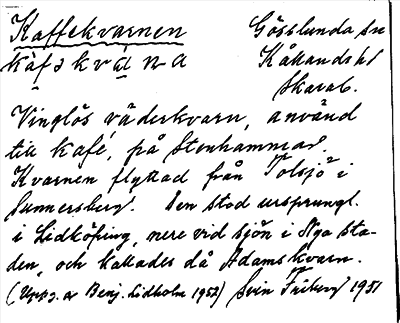 Kaffekvarnen Gösslunda sn
kafəkvaṇ na Kållands hd
Skarab.
Vinglös väderkvarn, använd
till kafé, på Stenhammar.
Kvarnen flyttad från Tolsjö i
Sunnersberg. Den stod ursprungl.
i Lidköping, nere vid sjön i Nya sta-
den, och kallades då Adamskvarn.
(Uppg. av Benj. Lidholm 1952) Svin Friberg 1951